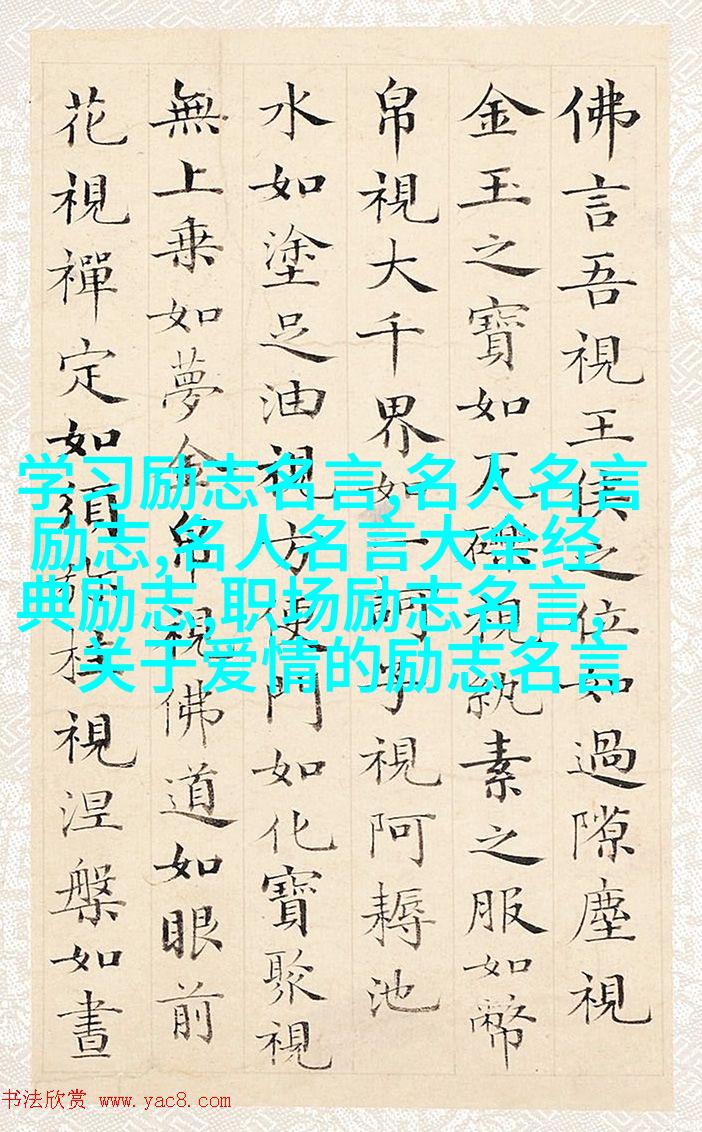 佛言吾視王侯之位如過隙塵視
金玉之寶如瓦礫視紈素之服如幣
帛視大千界如一訶子視阿耨池
水如塗足油視方便門如化寶聚視
無上乗如夢金帛視佛道如眼前
花視禪定如須柱視涅槃如晝
学习励志名言,名人名言
励志,名人名言大全经
典励志,职场励志名言,
关于爱情的励志名言
书法欣赏 www.yac8.com